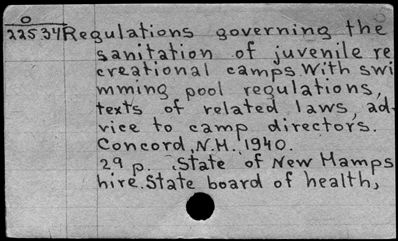 O
22534 Regulations governing the
sanitation of juvenile re
creational camps With swi
mming pool regulations,
texts of related laws, ad-
vice to camp directors.
Concord, N.H. 1940.
29 p. State of New Hamps
hire. State board of health,